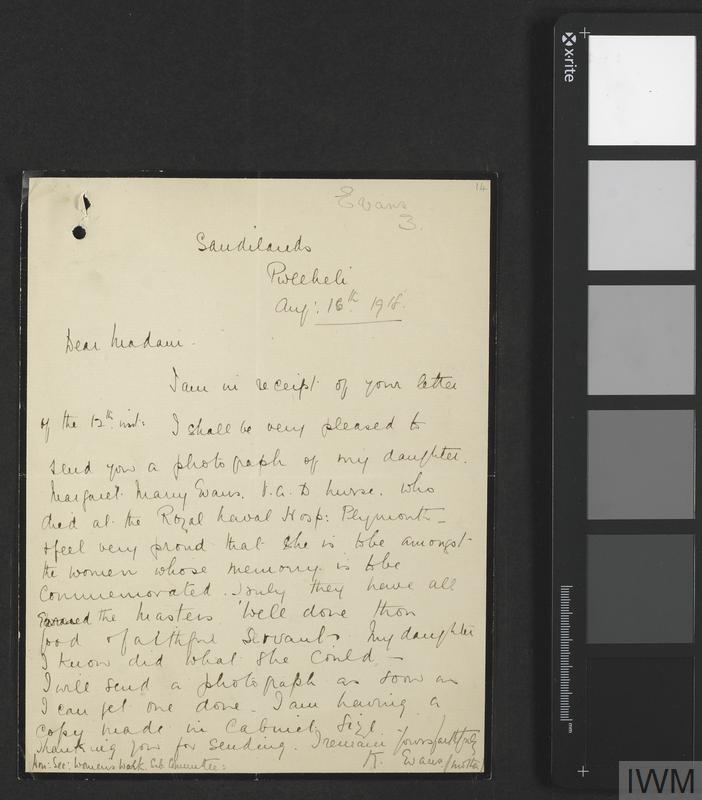 14
Evans
3.
Sandilands
Pwllheli
Aug: 16th 1918.
Dear Madam -
I am in receipt of your letter
of the 12th inst: I shall be very pleased to
send you a photograph of my daughter.
Margaret Mary Evans. V.A.D nurse. who
died at the Royal Naval Hosp: Plymouth -
& feel very proud that she is to be amongst
the women whose memory is to be
Commemorated. Truly they have all
Earned the Masters 'Well done thou
good & faithful Servant. My daughter
I know did what she could -
I will send a photograph as soon as
I can get one done. I am having a
copy made in Cabinet Size.
Thanking you for sending. I remain Yours faithfully
K. Evans (mother)
Hon: Sec: Women's Work. Sub Committee:
x-rite
mm
IWM